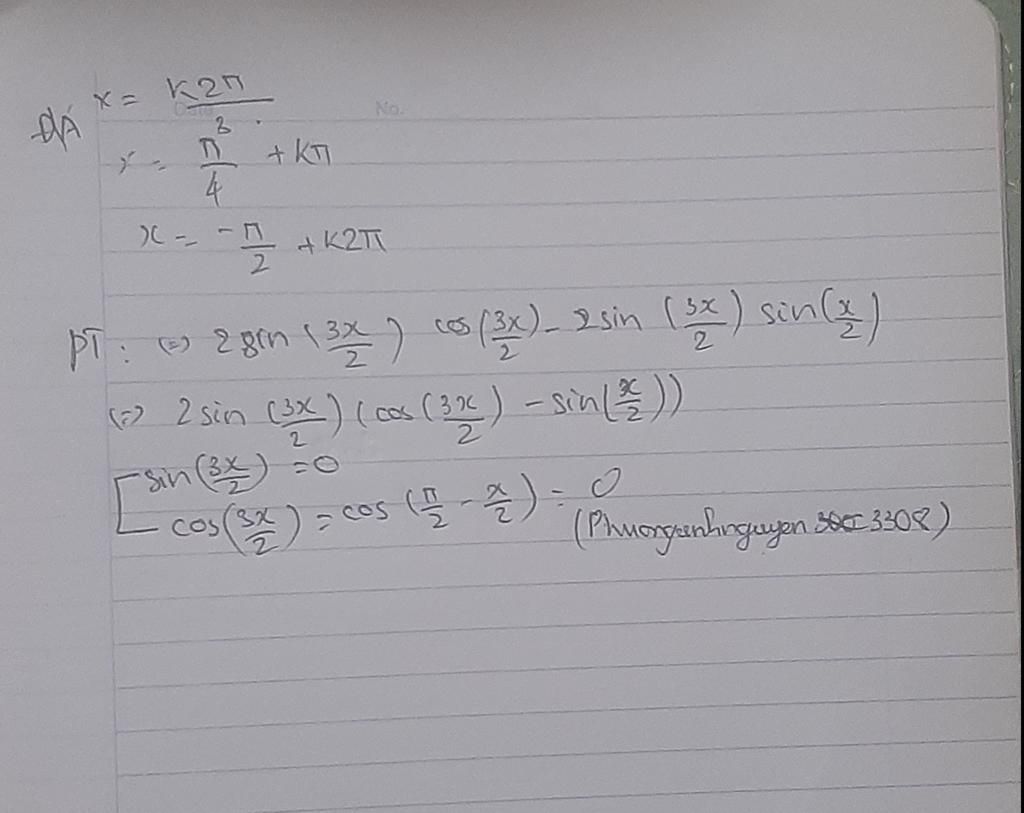 ĐÁ x = k2π/3
x = π/4 + kπ
x = -π/2 + k2π
PT: (=) 2 sin (3x/2) cos (3x/2) - 2 sin (3x/2) sin (x/2)
(=) 2 sin (3x/2) (cos (3x/2) - sin (x/2))
[ sin (3x/2) = 0
cos (3x/2) = cos (π/2 - x/2) = 0
(Phuonganhnguyen 3308)